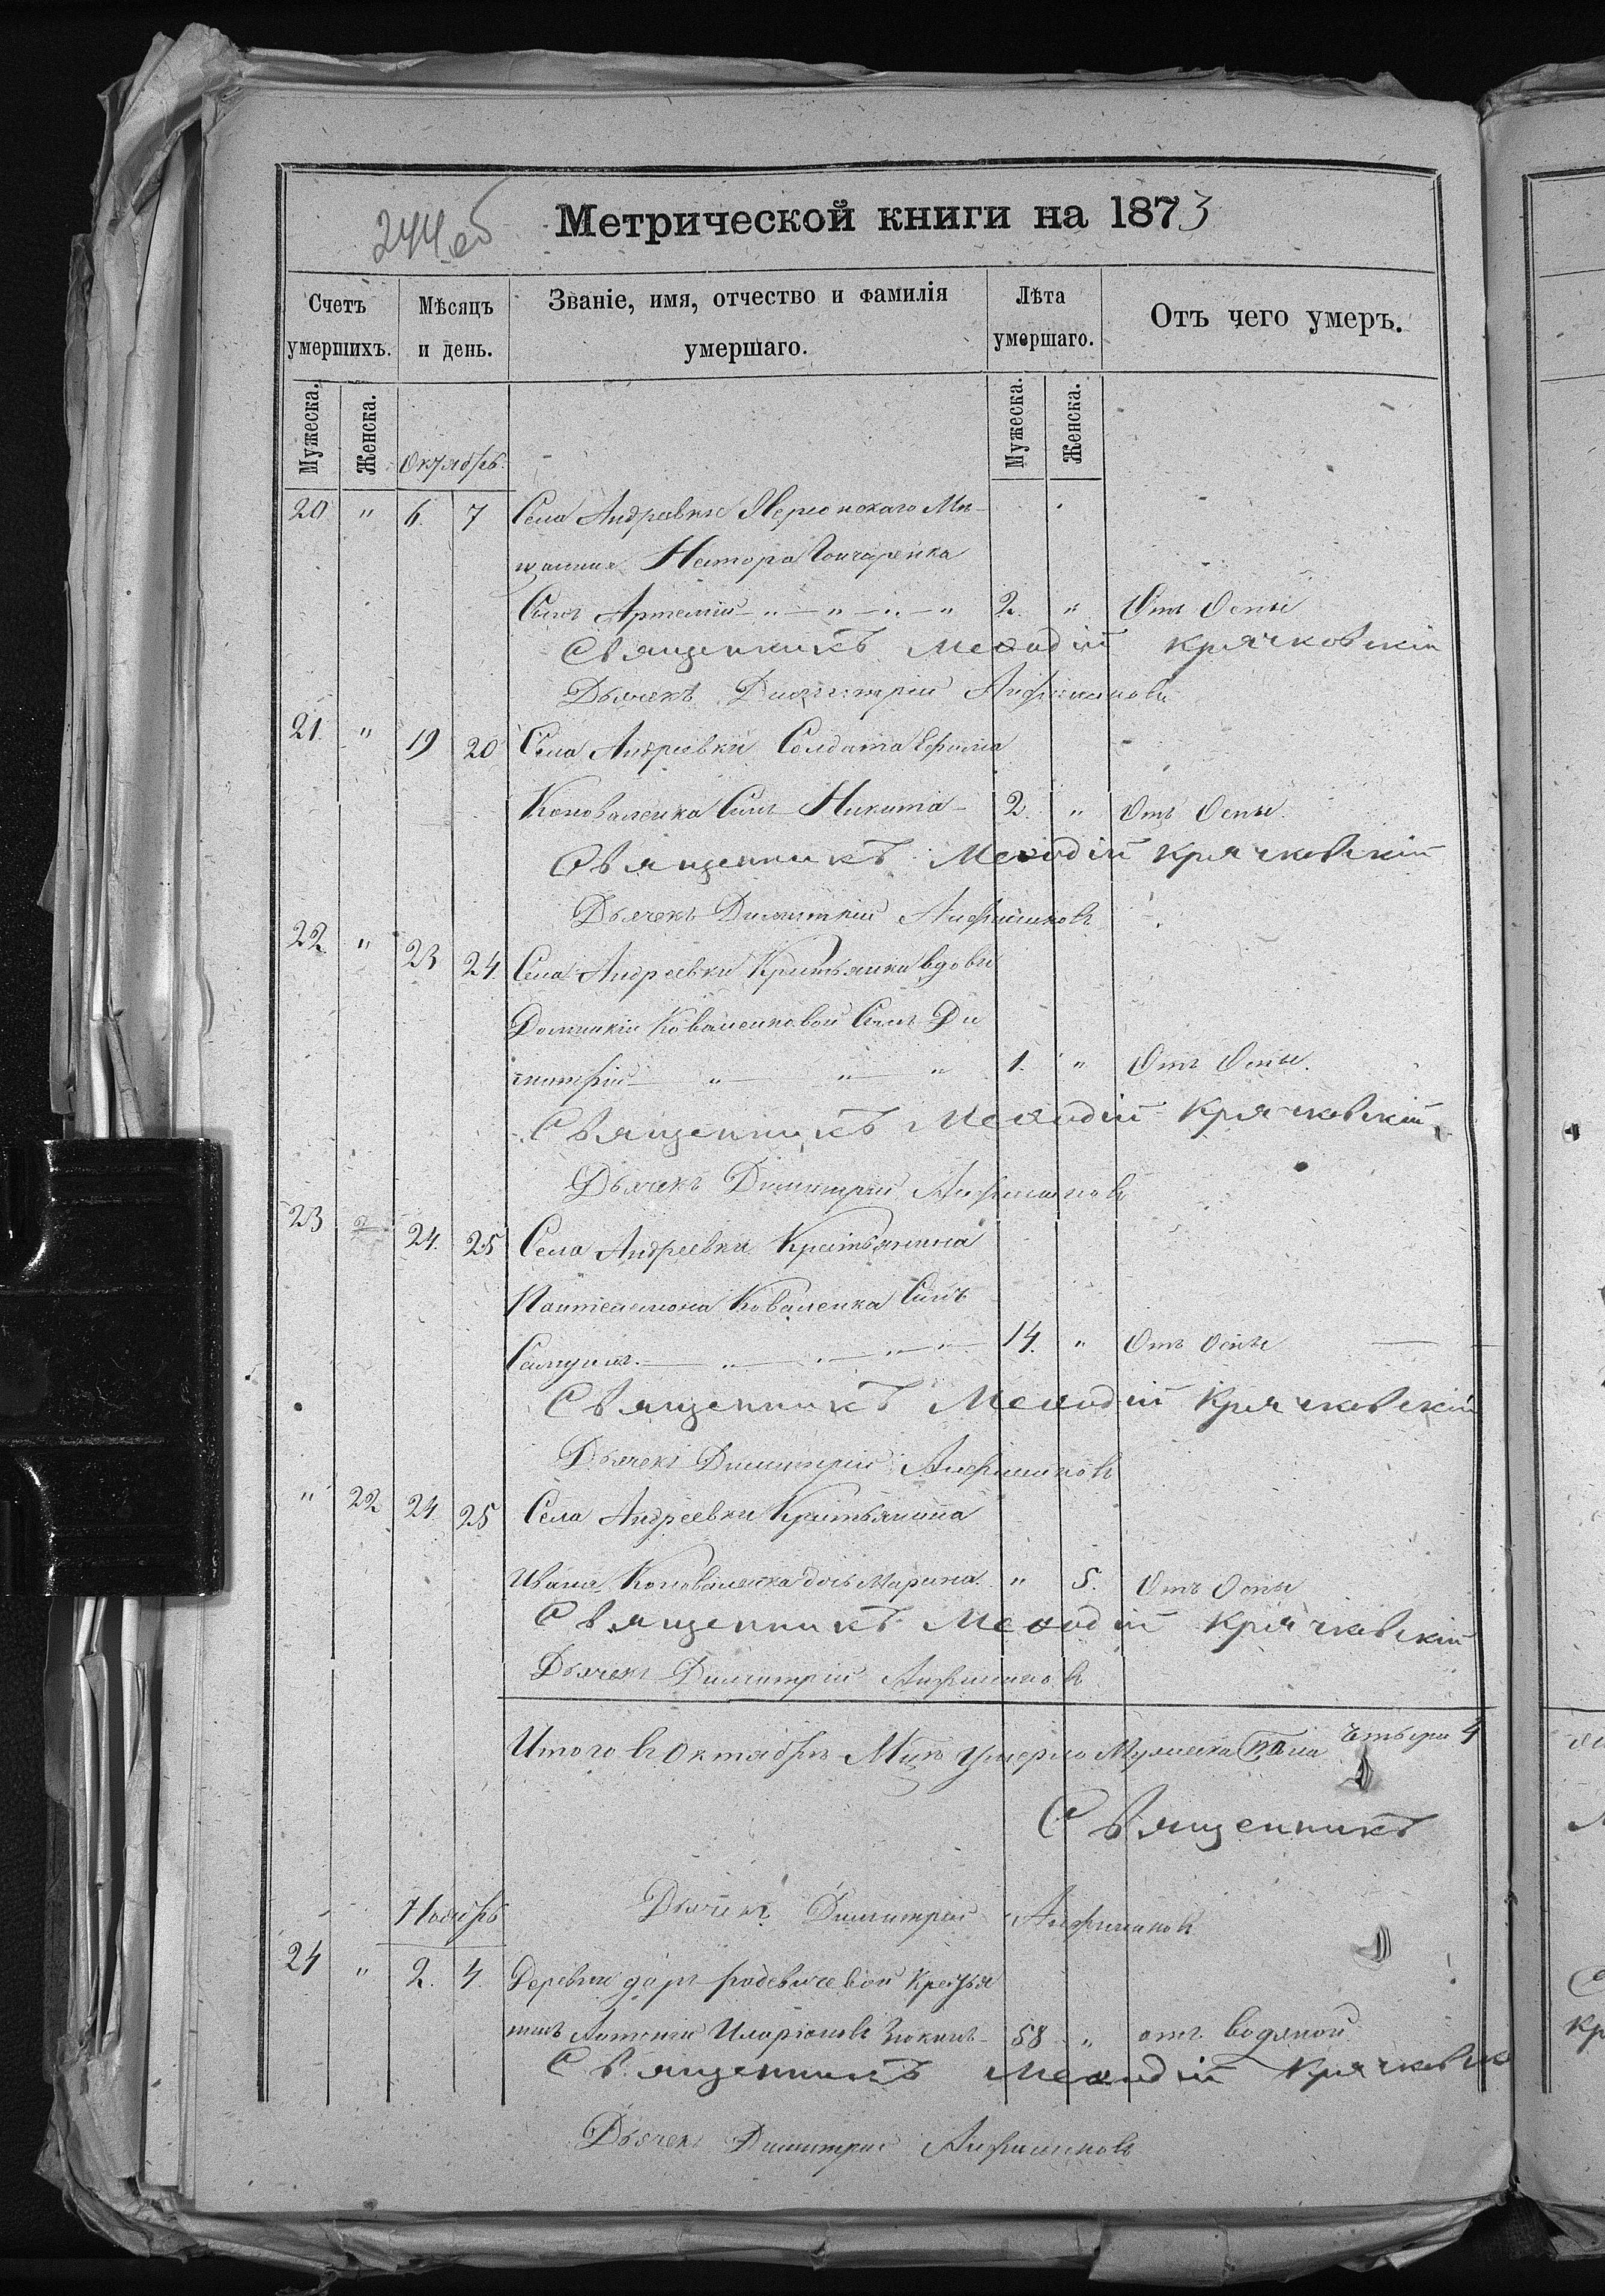 244 об
Метрической книги на 1873
Счетъ умершихъ.
Мѣсяцъ и день.
Званіе, имя, отчество и фамилія умершаго.
Лѣта умершаго.
Отъ чего умеръ.
Мужеска.
Женска.
Октябрь.
Мужеска.
Женска.
20 " 6. 7 Села Андреевки Херсонскаго Мѣ-
щанина Нестора Гончаренка
Сынъ Артемій - " - " - " - " 2. " Отъ Оспы
Священникъ Меѳодій Крячковскій
Дьячекъ Димитрій
21. " 19 20 Села Андреевки Солдата Ефима
Коноваленка Сынъ Никита - 2. " Отъ Оспы.
Священникъ Меѳодій Крячковскій
Дьячекъ Димитрій
22. " 23 24. Села Андреевки Крестьянки вдовы
Домникіи Коваленковой Сынъ Ди
митрій - " - " - " 1. " Отъ Оспы.
Священникъ Меѳодій Крячковскій
Дьячекъ Димитрій
23 " 24. 25 Села Андреевки Крестьянина
Пантелемона Коваленка Сынъ
Самуилъ. - " - " - " - " 14. " Отъ Оспы
Священникъ Меѳодій Крячковскій
Дьячекъ Димитрій
" 22 24. 25 Села Андреевки Крестьянина
Ивана Коноваленка дочь Марина. " 5. Отъ Оспы
Священникъ Меѳодій Крячковскій
Дьячекъ Димитрій
Итого въ Октябрѣ Мцѣ умерло Мужеска пола четыри 4
Священникъ
Дьячекъ Димитрій
Ноябрь
24 " 2. 4. Деревни Крестья
нинъ Антоній Иларіоновъ 58 " отъ водяной
Священникъ Меѳодій Крячковск
Дьячекъ Димитрій